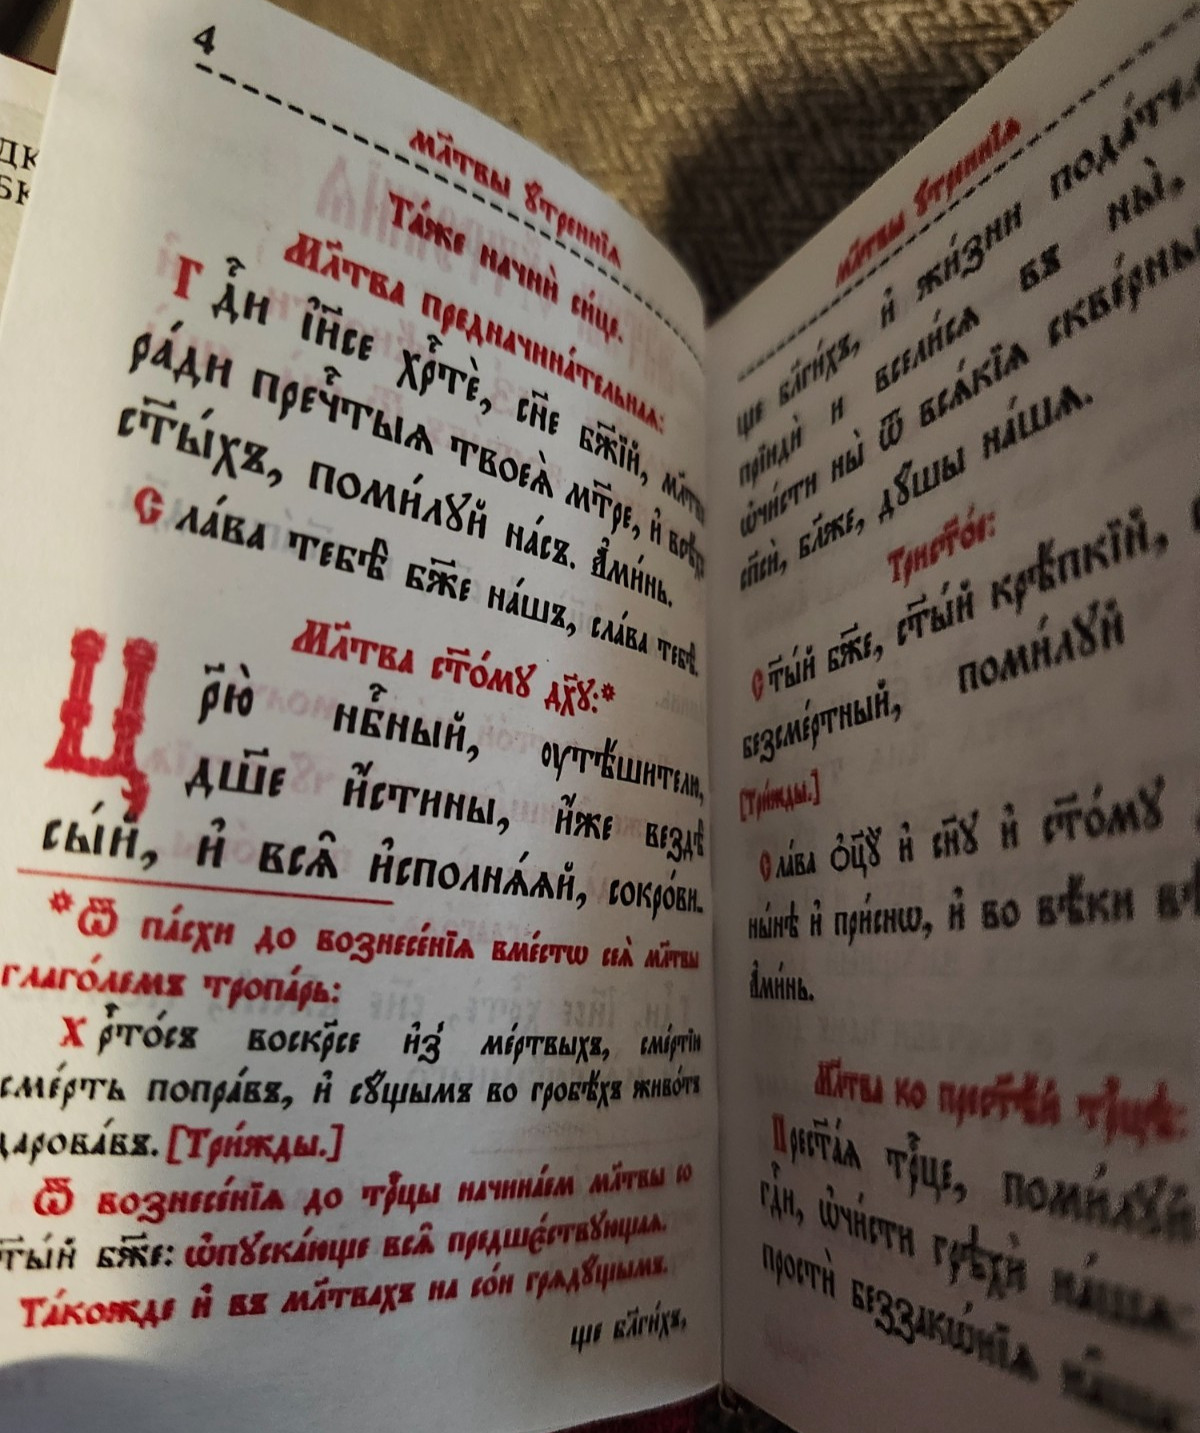 4
мл҃твы ᲂу҆́треннїѧ
Та́же начнѝ си́це.
Мл҃тва предначина́тельнаѧ:
Гдⷭ҇и і҆и҃се хрⷭ҇тѐ, сн҃е бж҃їй, мл҃твъ
ра́ди пречⷭ҇тыѧ твоеѧ̀ мт҃ре, и҆ всѣ́хъ
ст҃ы́хъ, поми́лꙋй на́съ. А҆ми́нь.
Сла́ва тебѣ̀ бж҃е на́шъ, сла́ва тебѣ̀.
Мл҃тва ст҃о́мꙋ дх҃ꙋ:*
Цр҃ю̀ нбⷭ҇ный, ᲂутѣ́шителю,
дш҃е и҆́стины, и҆́же вездѣ̀
сы́й, и҆ всѧ̑ и҆сполнѧ́ѧй, сокро́ви-
*Ѿ па́схи до вознесе́нїѧ вмѣ́стѡ сеѧ̀ мл҃твы
глаго́лемъ тропа́рь:
Хрⷭ҇то́съ воскр҃се и҆з̾ ме́ртвыхъ, сме́ртїю
сме́рть попра́въ, и҆ сꙋ́щымъ во гробѣ́хъ живо́тъ
дарова́въ. [Три́жды.]
Ѿ вознесе́нїѧ до трⷪ҇цы начина́ем мл҃твы со
ст҃ы́й бж҃е: ѡ҆пꙋска́юще всѧ̑ предше́ствꙋющаѧ.
Та́кожде и҆ въ мл҃твахъ на со́н грѧдꙋ́щымъ.
ще бл҃ги́хъ,
ДК
БК
мл҃твы ᲂу҆́треннїѧ
ще бл҃ги́хъ, и҆ жи́зни
прїидѝ и вселисѧ въ ны̀,
ѡ҆чи́сти ны̀ ѿ всѧ́кїѧ скве́рны,
сп҃сѝ, бл҃же, дꙋ́шы на́шѧ.
Трист҃о́е:
Ст҃ы́й бж҃е, ст҃ы́й крѣ́пкїй,
безсме́ртный, поми́лꙋй
[Три́жды.]
Сла́ва ѻ҆ц҃ꙋ̀ и҆ сн҃ꙋ и҆ ст҃о́мꙋ
ны́нѣ и҆ при́снѡ, и҆ во вѣ́ки
А҆ми́нь.
Мл҃тва ко прест҃ѣ́й трⷪ҇цѣ:
Прест҃а́ѧ трⷪ҇це, поми́лꙋй
гдⷭ҇и, ѡ҆чи́сти грѣхѝ на́шѧ:
простѝ беззакѡ́нїѧ на́ша